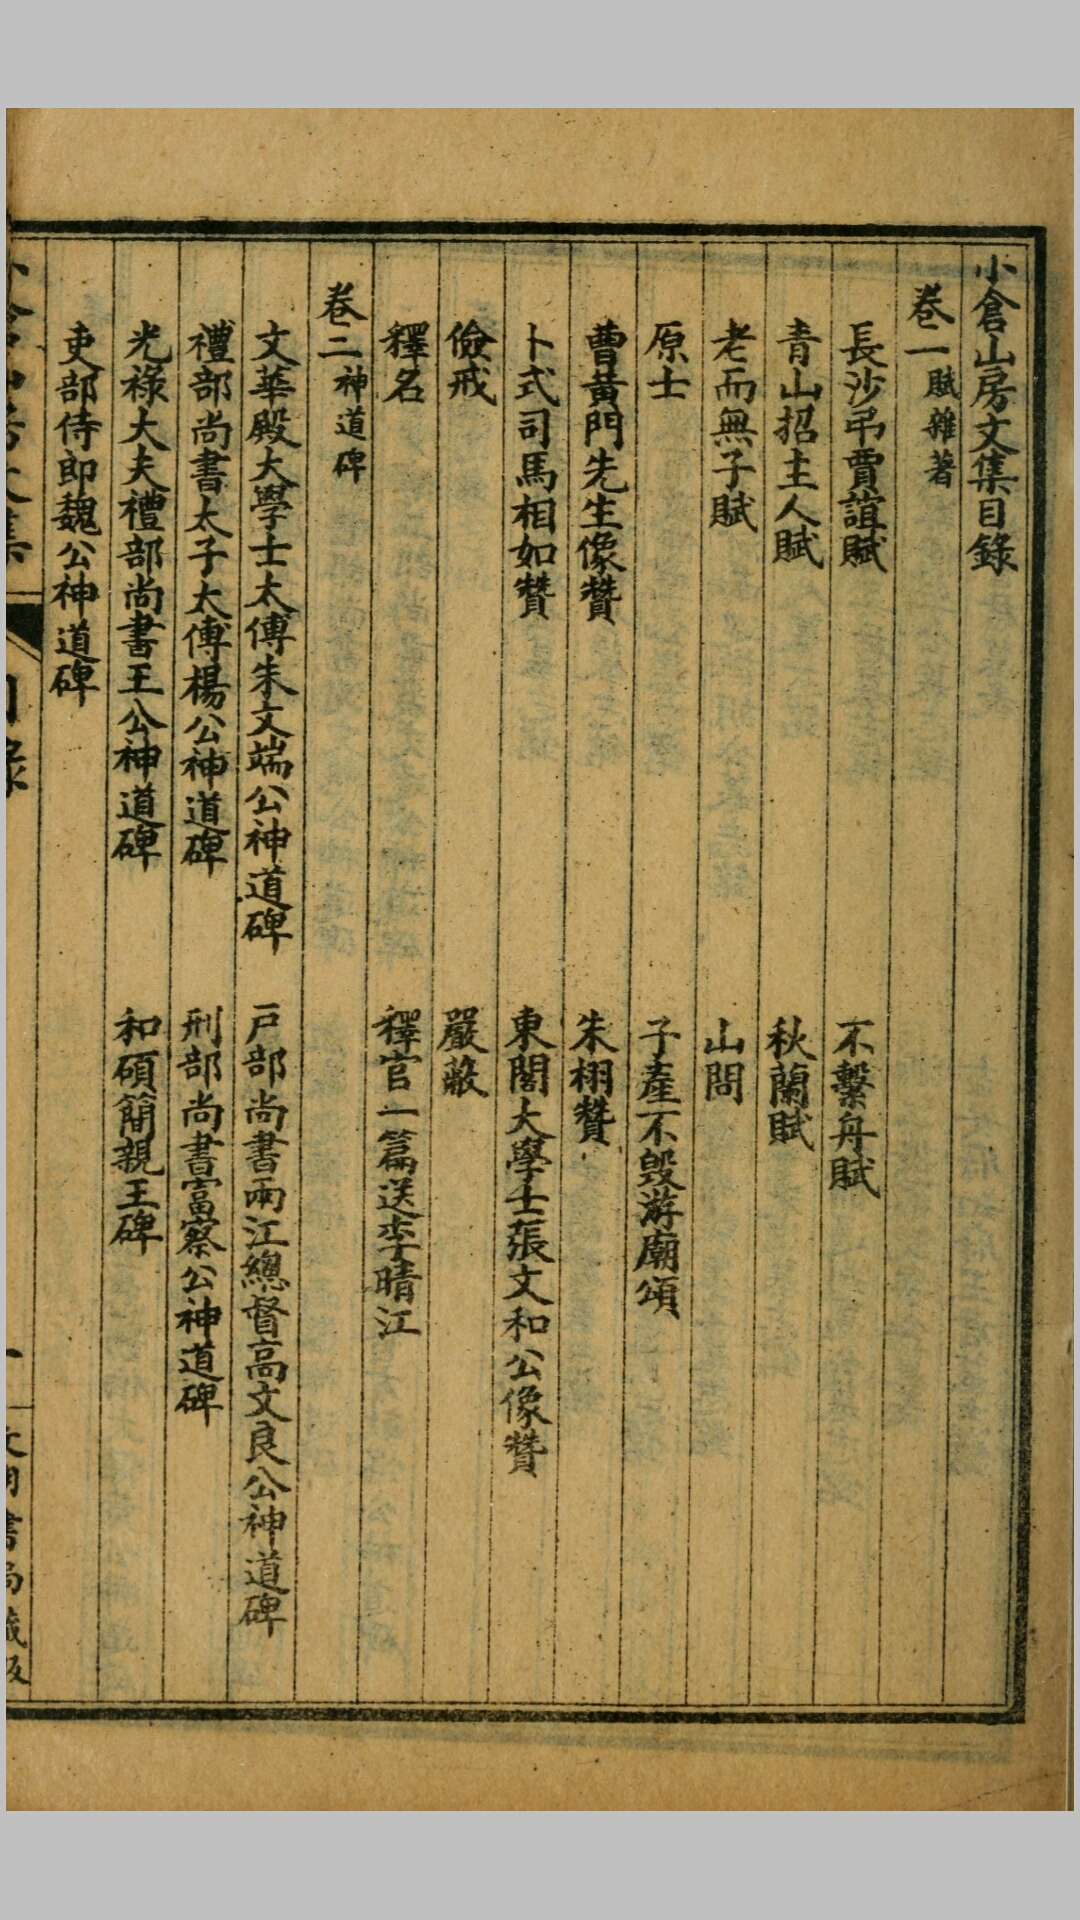 小倉山房文集目錄
卷一 賦 雜著
長沙弔賈誼賦 不繫舟賦
青山招主人賦 秋蘭賦
老而無子賦 山問
原士 子產不毀游廟頌
曹黃門先生像贊 朱栩贊
卜式司馬相如贊 東閣大學士張文和公像贊
儉戒 嚴蔽
釋名 釋官一篇送李晴江
卷二 神道碑
文華殿大學士太傅朱文端公神道碑 戶部尚書兩江總督高文良公神道碑
禮部尚書太子太傅楊公神道碑 刑部尚書富察公神道碑
光祿大夫禮部尚書王公神道碑 和碩簡親王碑
吏部侍郎魏公神道碑
小倉山房文集 目錄 一 文明書局藏版